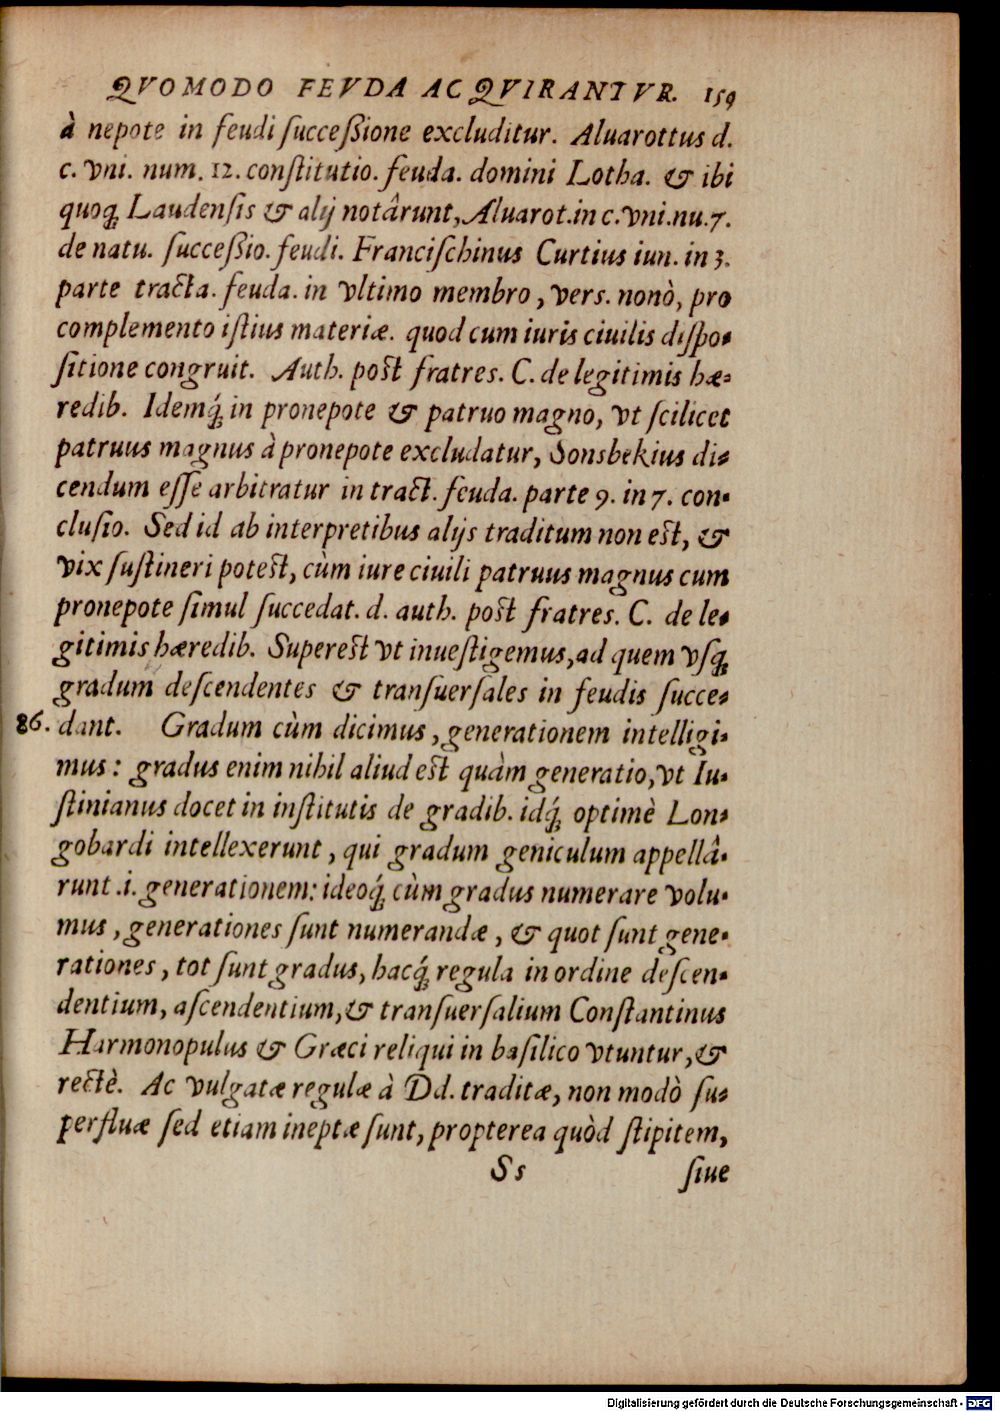 QVOMODO FEVDA ACQVIRANTVR. 159
à nepote in feudi ſucceßione excluditur. Aluarottus d.
c. vni. num. 12. conſtitutio. feuda. domini Lotha. & ibi
quoq́ꝫ Laudenſis & alij notârunt, Aluarot. in c. vni. nu. 7.
de natu. ſucceßio. feudi. Franciſchinus Curtius iun. in 3.
parte tracta. feuda. in vltimo membro, verſ. nonò, pro
complemento iſtius materiæ. quod cum iuris ciuilis diſpo-
ſitione congruit. Auth. poſt fratres. C. de legitimis hæ-
redib. Idemq́ꝫ in pronepote & patruo magno, vt ſcilicet
patruus magnus à pronepote excludatur, Sonsbekius di-
cendum eſſe arbitratur in tract. feuda. parte 9. in 7. con-
cluſio. Sed id ab interpretibus alijs traditum non eſt, &
vix ſuſtineri poteſt, cùm iure ciuili patruus magnus cum
pronepote ſimul ſuccedat. d. auth. poſt fratres. C. de le-
gitimis hæredib. Supereſt vt inueſtigemus, ad quem vſq́ꝫ
gradum deſcendentes & tranſuerſales in feudis ſucce-
86. dant. Gradum cùm dicimus, generationem intelligi-
mus: gradus enim nihil aliud eſt quàm generatio, vt Iu-
ſtinianus docet in inſtitutis de gradib. idq́ꝫ optimè Lon-
gobardi intellexerunt, qui gradum geniculum appellâ-
runt .i. generationem: ideoq́ꝫ cùm gradus numerare volu-
mus, generationes ſunt numerandæ, & quot ſunt gene-
rationes, tot ſunt gradus, hacq́ꝫ regula in ordine deſcen-
dentium, aſcendentium, & tranſuerſalium Conſtantinus
Harmonopulus & Græci reliqui in baſilico vtuntur, &
rectè. Ac vulgatæ regulæ à Dd. traditæ, non modò ſu-
perfluæ ſed etiam ineptæ ſunt, propterea quòd ſtipitem,
Ss ſiue
Digitalisierung gefördert durch die Deutsche Forschungsgemeinschaft - DFG